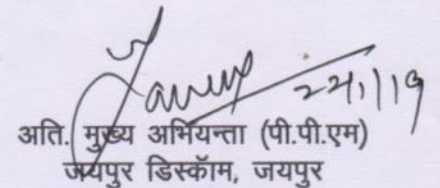 22/1/19
अति. मुख्य अभियन्ता (पी.पी.एम)
जयपुर डिस्कॉम, जयपुर